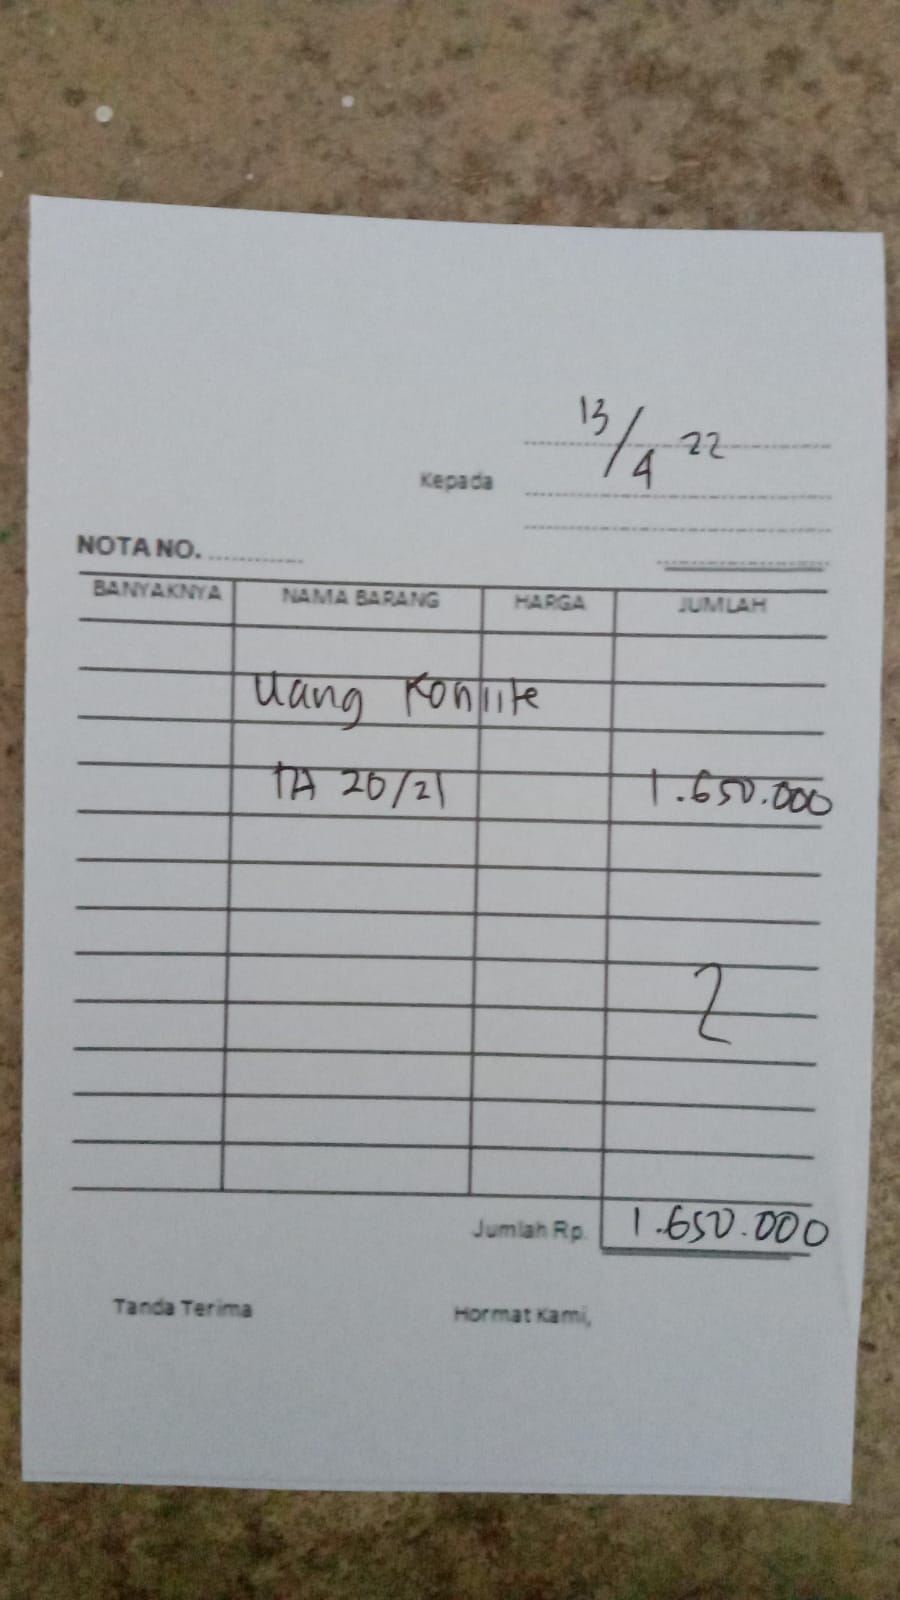 13/4 22
Kepada
NOTA NO. ............
BANYAKNYA NAMA BARANG HARGA JUMLAH
Uang
TA 20/21 1.650.000
Jumlah Rp. 1.650.000
Tanda Terima Hormat Kami,